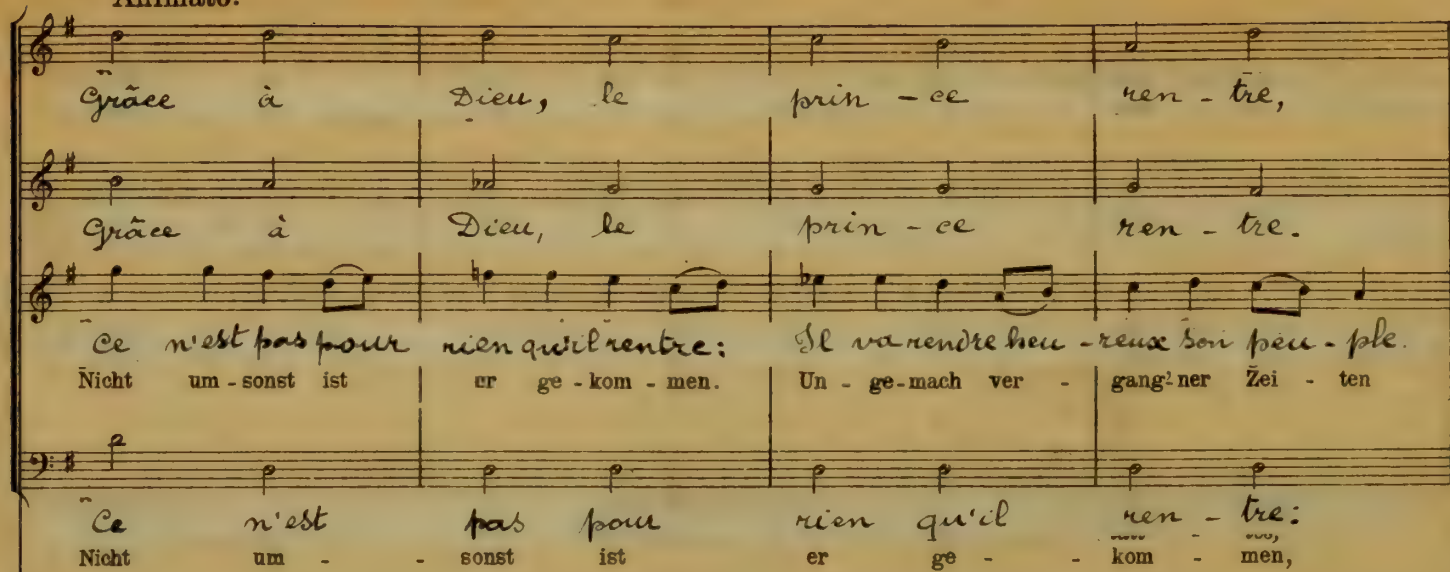 Animato.
Grâce à Dieu, le prin - ce ren - tre,
Grâce à Dieu, le prin - ce ren - tre.
Ce n'est pas pour rien qu'il rentre: Il va rendre heu - reux son peu - ple.
Nicht um - sonst ist er ge - kom - men. Un - ge - mach ver - gang'ner Zei - ten
Ce n'est pas pour rien qu'il ren - tre:
Nicht um - sonst ist er ge - kom - men,